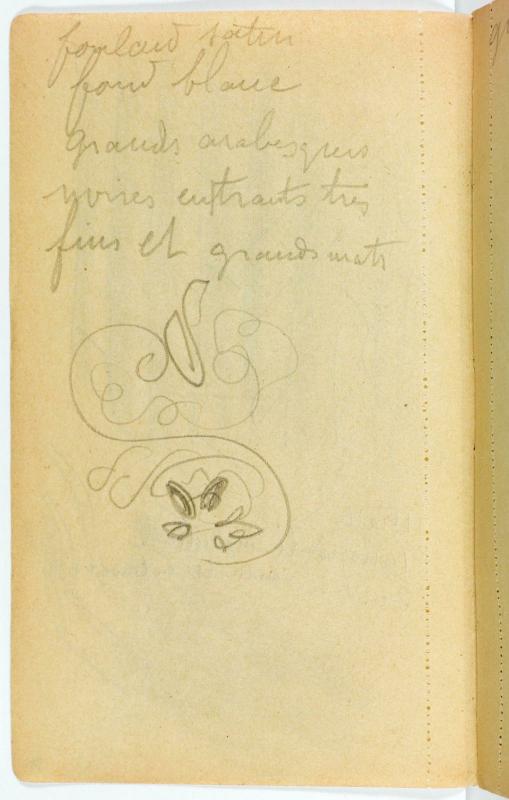 foulard satin
fond blanc
grands arabesques
noires en traits très
fins et grands mats